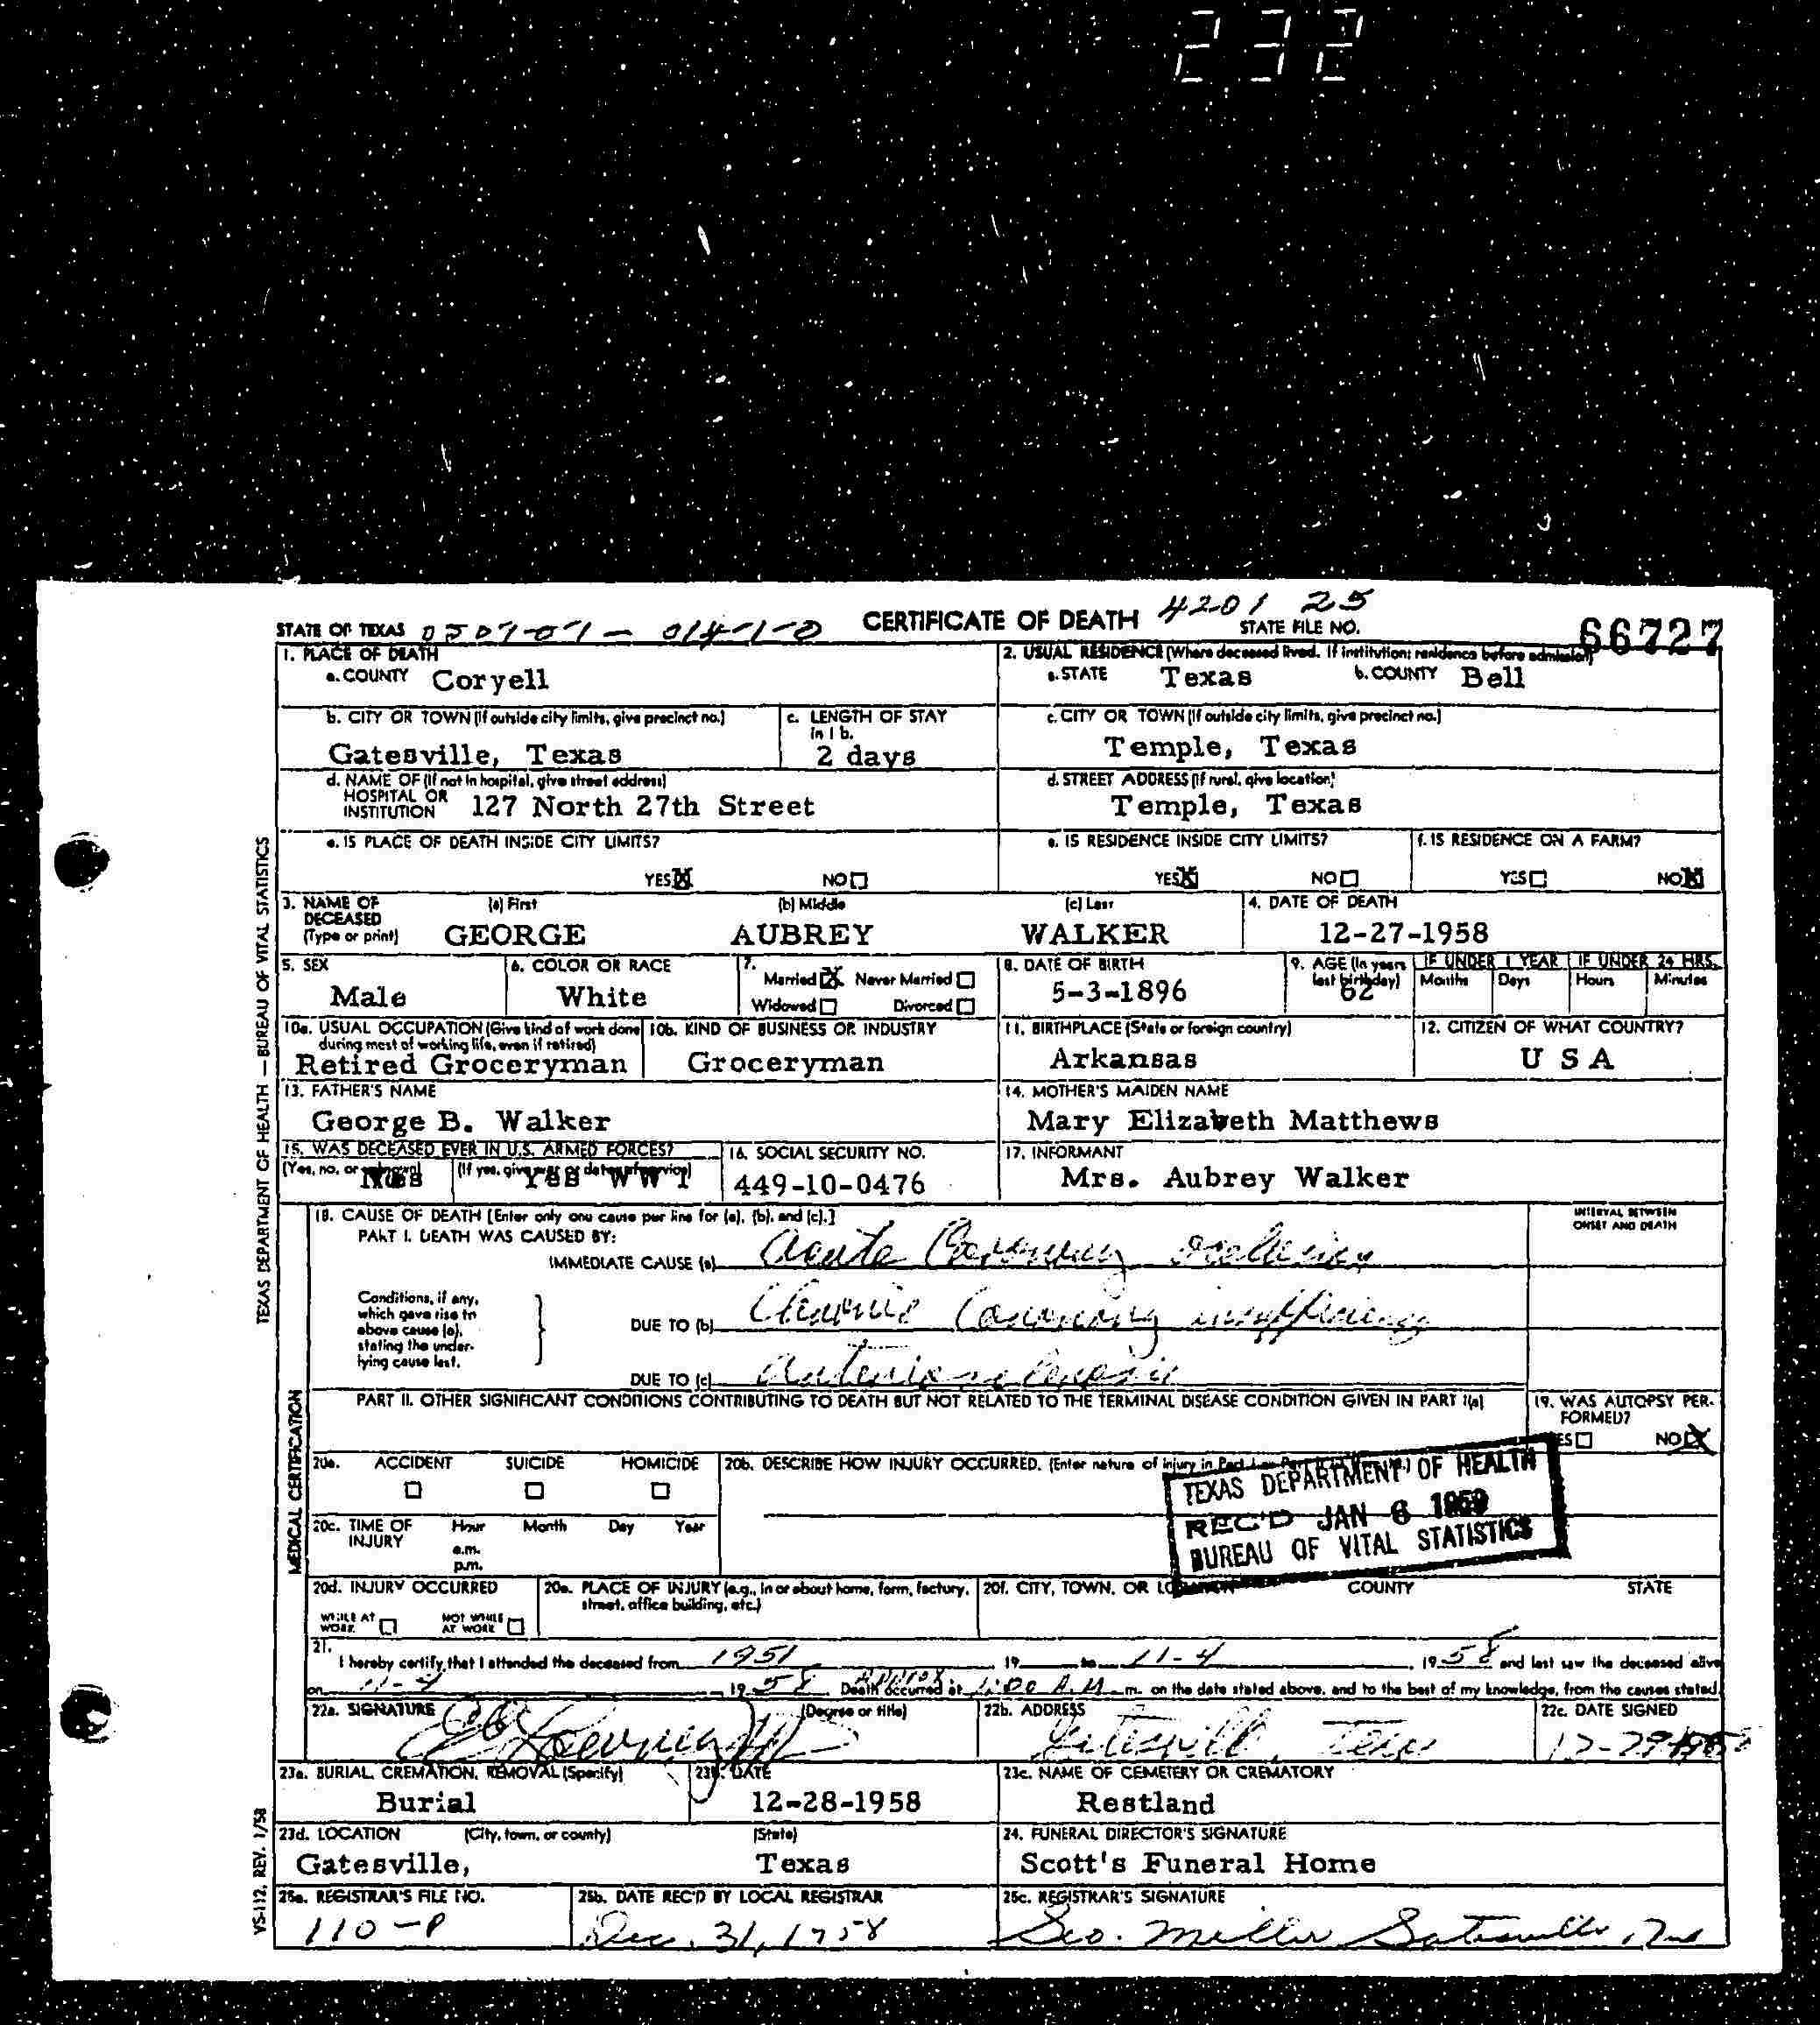 232
CERTIFICATE OF DEATH 4201 25
STATE OF TEXAS STATE FILE NO. 66727
1. PLACE OF DEATH
a. COUNTY Coryell
2. USUAL RESIDENCE (Where deceased lived. If institution: residence before admission)
a. STATE Texas b. COUNTY Bell
b. CITY OR TOWN (If outside city limits, give precinct no.)
Gatesville, Texas
c. LENGTH OF STAY
in 1 b.
2 days
c. CITY OR TOWN (If outside city limits, give precinct no.)
Temple, Texas
d. NAME OF (If not in hospital, give street address)
HOSPITAL OR
INSTITUTION 127 North 27th Street
d. STREET ADDRESS (If rural, give location)
Temple, Texas
e. IS PLACE OF DEATH INSIDE CITY LIMITS?
YES NO
e. IS RESIDENCE INSIDE CITY LIMITS?
YES NO
f. IS RESIDENCE ON A FARM?
YES NO
3. NAME OF
DECEASED
(Type or print)
(a) First (b) Middle (c) Last
GEORGE AUBREY WALKER
4. DATE OF DEATH
12-27-1958
5. SEX
Male
6. COLOR OR RACE
White
7.
Married Never Married
Widowed Divorced
8. DATE OF BIRTH
5-3-1896
9. AGE (In years
last birthday)
62
IF UNDER 1 YEAR IF UNDER 24 HRS.
Months Days Hours Minutes
10a. USUAL OCCUPATION (Give kind of work done
during most of working life, even if retired)
Retired Groceryman
10b. KIND OF BUSINESS OR INDUSTRY
Groceryman
11. BIRTHPLACE (State or foreign country)
Arkansas
12. CITIZEN OF WHAT COUNTRY?
U S A
13. FATHER'S NAME
George B. Walker
14. MOTHER'S MAIDEN NAME
Mary Elizabeth Matthews
15. WAS DECEASED EVER IN U.S. ARMED FORCES?
(Yes, no, or unknown) (If yes, give war or dates of service)
Yes WW I
16. SOCIAL SECURITY NO.
449-10-0476
17. INFORMANT
Mrs. Aubrey Walker
18. CAUSE OF DEATH [Enter only one cause per line for (a), (b), and (c).]
PART I. DEATH WAS CAUSED BY:
IMMEDIATE CAUSE (a) Acute Coronary occlusion
INTERVAL BETWEEN
ONSET AND DEATH
Conditions, if any,
which gave rise to
above cause (a),
stating the under-
lying cause last.
DUE TO (b) Chronic Coronary insufficiency
DUE TO (c) Arteriosclerosis
PART II. OTHER SIGNIFICANT CONDITIONS CONTRIBUTING TO DEATH BUT NOT RELATED TO THE TERMINAL DISEASE CONDITION GIVEN IN PART I(a)
19. WAS AUTOPSY PER-
FORMED?
YES NO
20a. ACCIDENT SUICIDE HOMICIDE
20b. DESCRIBE HOW INJURY OCCURRED. (Enter nature of injury in
TEXAS DEPARTMENT OF HEALTH
REC'D JAN 6 1959
BUREAU OF VITAL STATISTICS
20c. TIME OF
INJURY
Hour Month Day Year
a.m.
p.m.
20d. INJURY OCCURRED
WHILE AT
WORK
NOT WHILE
AT WORK
20e. PLACE OF INJURY (e.g., in or about home, farm, factory,
street, office building, etc.)
20f. CITY, TOWN, OR LOCATION COUNTY STATE
21.
I hereby certify that I attended the deceased from 1951 19 to 11-4, 1958 and last saw the deceased alive
on 11-4 1958 Death occurred at approx 1:00 A.M m. on the date stated above, and to the best of my knowledge, from the causes stated.
22a. SIGNATURE (Degree or title)
22b. ADDRESS
Gatesville, Texas
22c. DATE SIGNED
12-29-1958
23a. BURIAL, CREMATION, REMOVAL (Specify)
Burial
23b. DATE
12-28-1958
23c. NAME OF CEMETERY OR CREMATORY
Restland
23d. LOCATION (City, town, or county) (State)
Gatesville, Texas
24. FUNERAL DIRECTOR'S SIGNATURE
Scott's Funeral Home
25a. REGISTRAR'S FILE NO.
110-P
25b. DATE REC'D BY LOCAL REGISTRAR
Dec. 31, 1958
25c. REGISTRAR'S SIGNATURE
Geo. Miller Gatesville,
TEXAS DEPARTMENT OF HEALTH — BUREAU OF VITAL STATISTICS
MEDICAL CERTIFICATION
VS-112, REV. 1/58